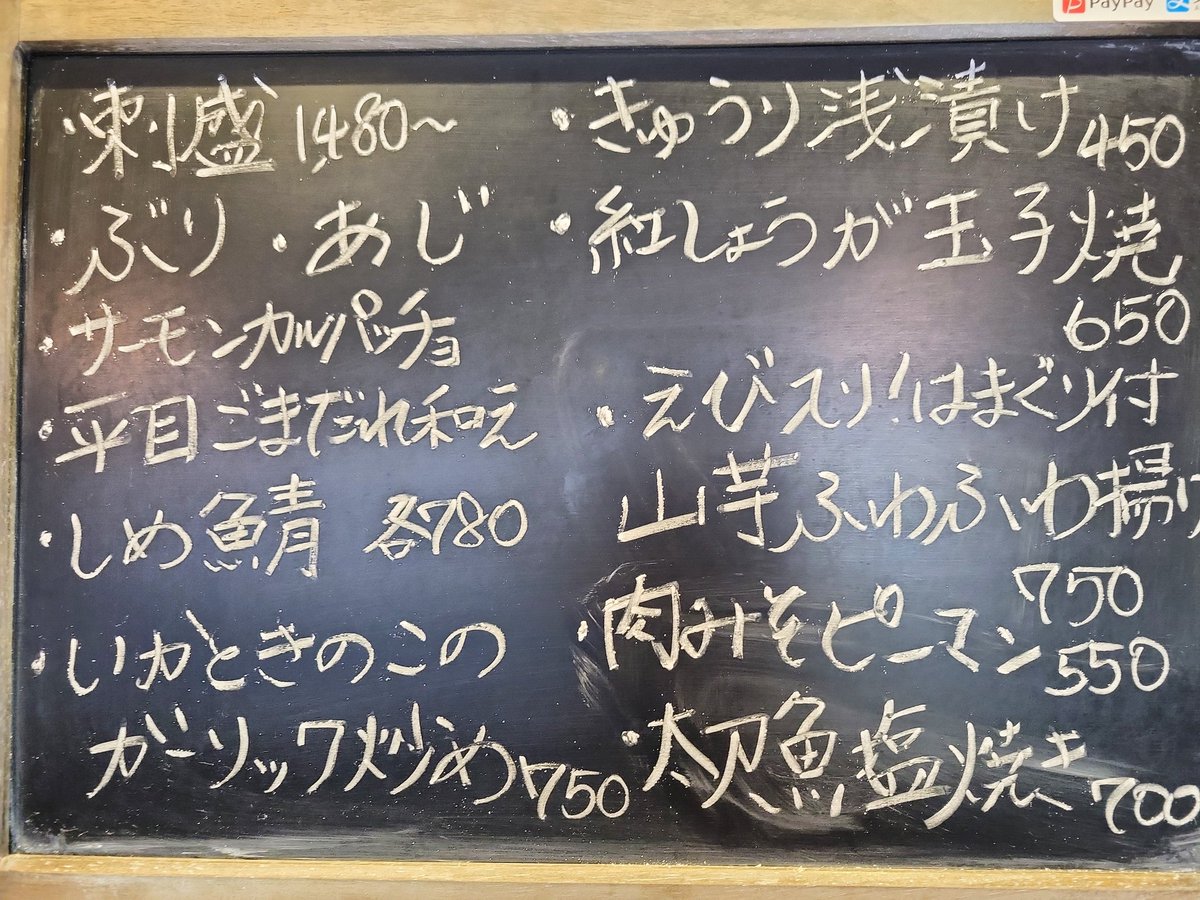 ・刺盛 1,480〜
・ぶり ・あじ
・サーモンカルパッチョ
・平目ごまだれ和え
・しめ鯖 各780
・いかときのこの
ガーリック炒め 750
・きゅうり浅漬け 450
・紅しょうが玉子焼
650
・えび入り!はまぐり付
山芋ふわふわ揚げ
750
・肉みそピーマン 550
・太刀魚塩焼き 700
PayPay